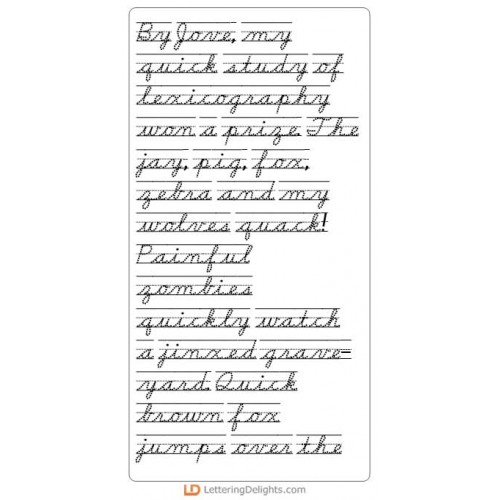 By Jove, my
quick study of
lexicography
won a prize. The
jay, pig, fox,
zebra and my
wolves quack!
Painful
zombies
quickly watch
a jinxed grave-
yard. Quick
brown fox
jumps over the
LD LetteringDelights.com